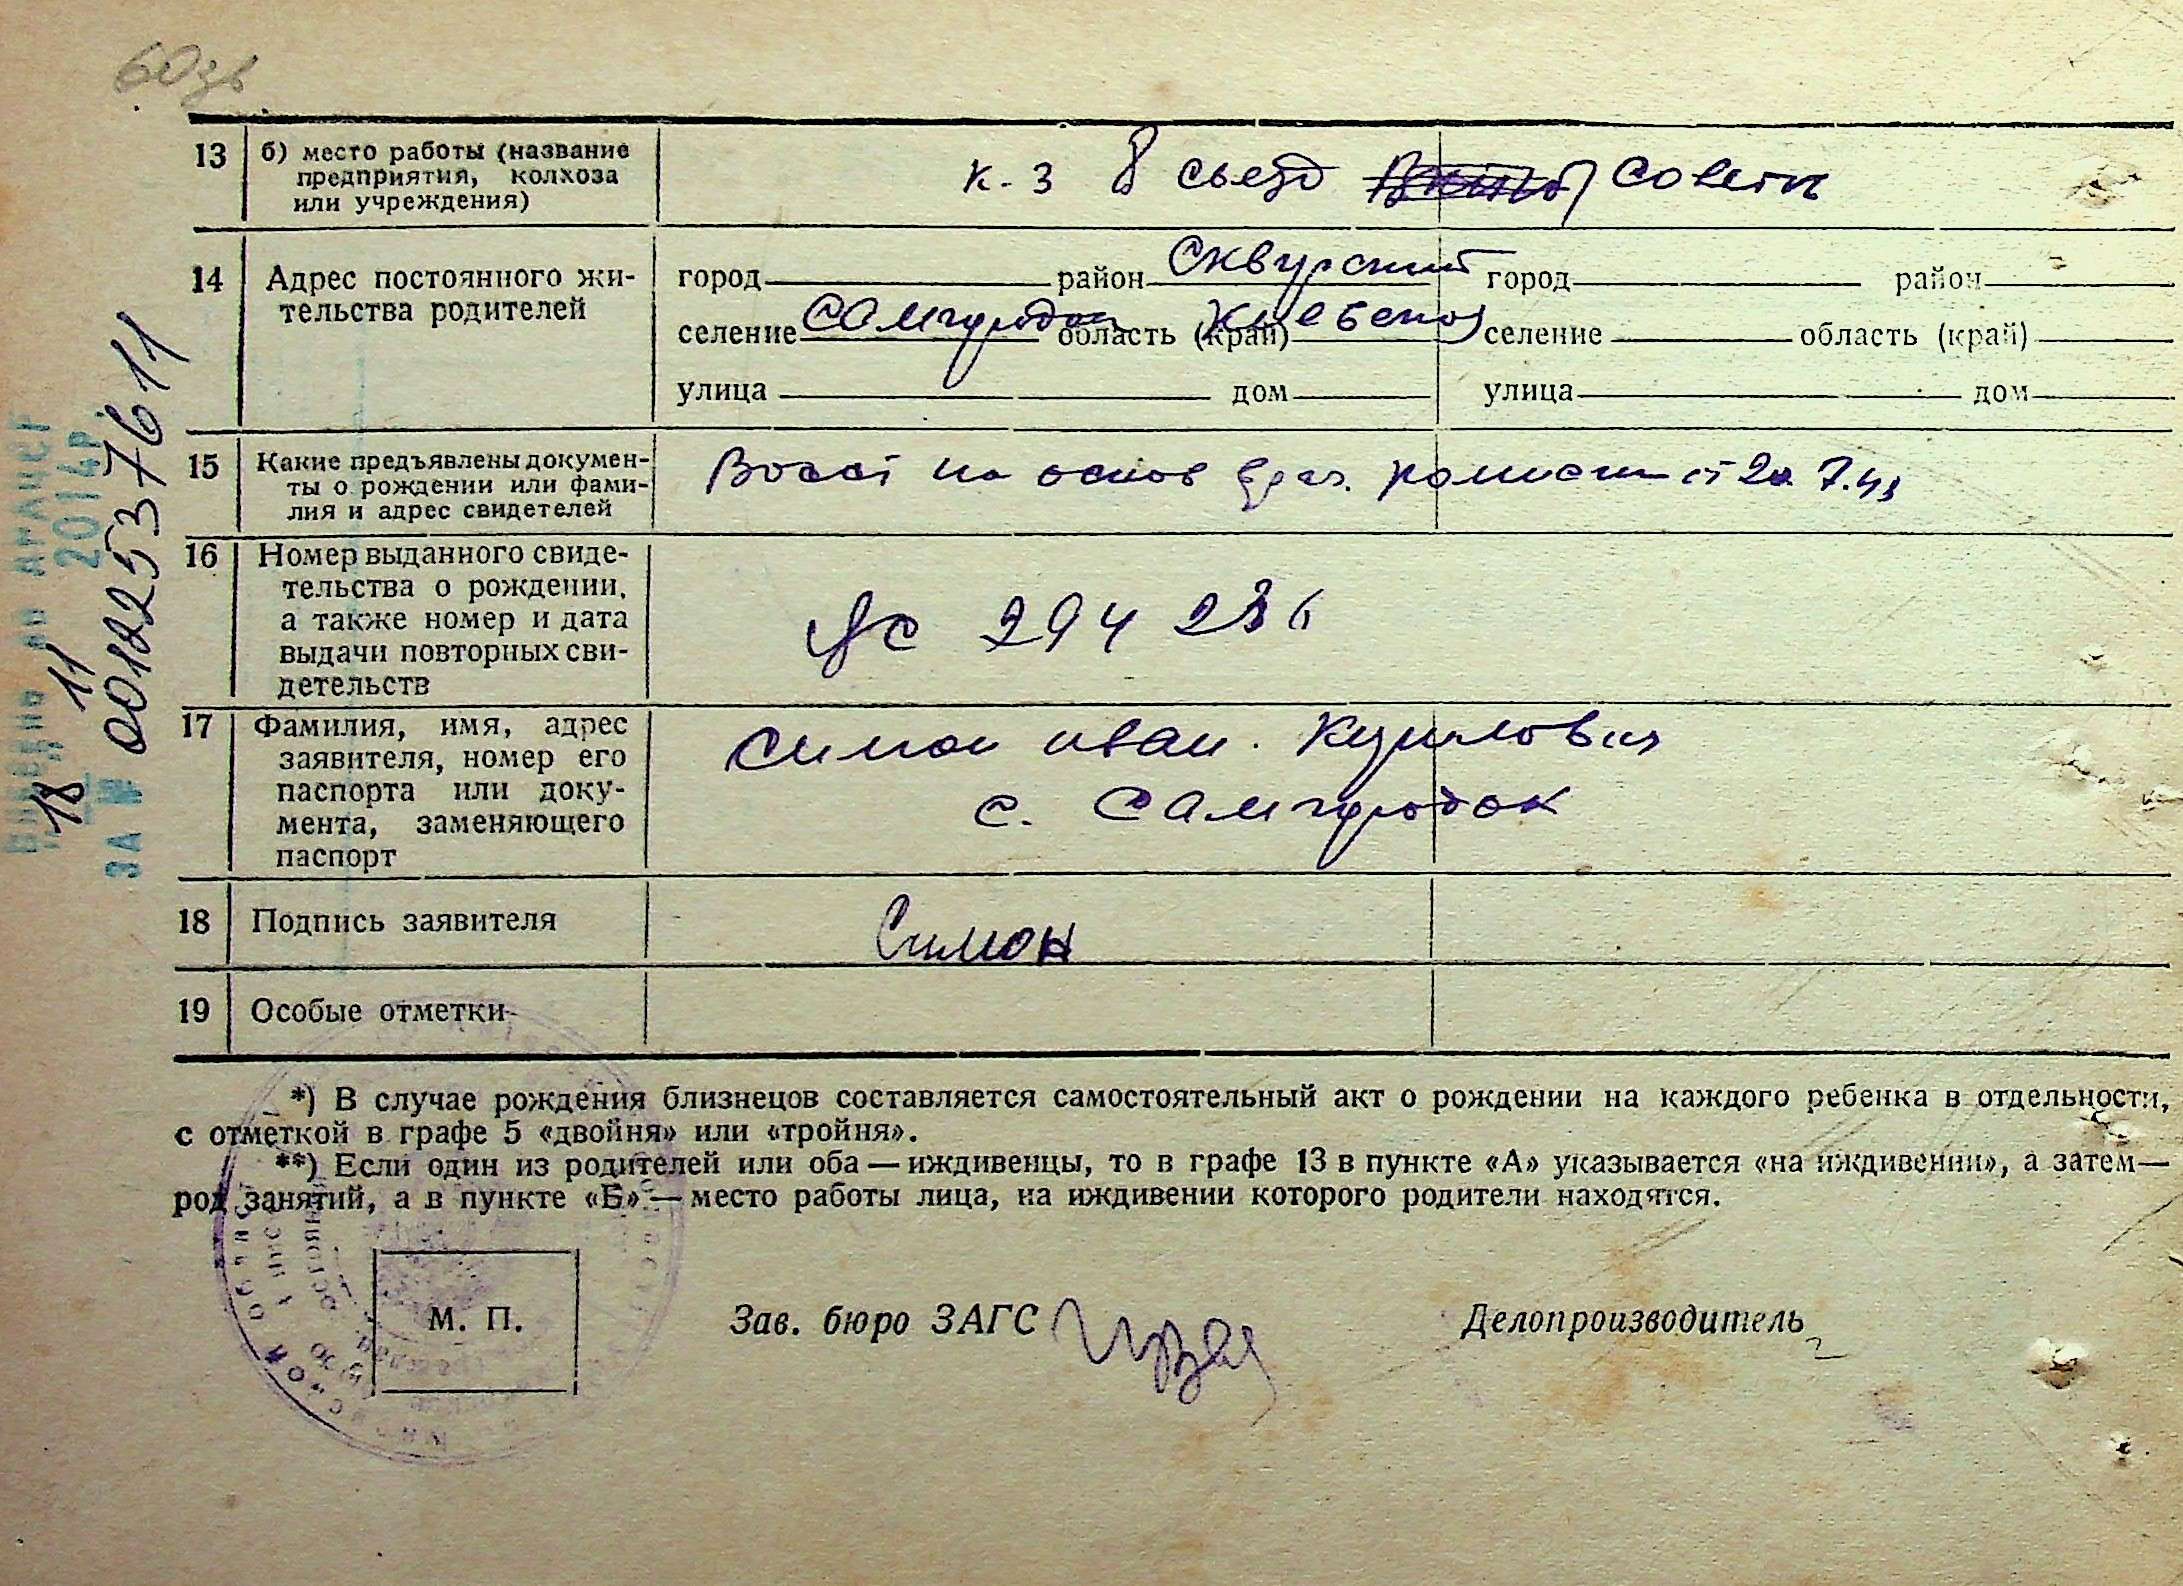 13 б) место работы (название
предприятия, колхоза
или учреждения)
к-з 8 сьезд советы
14 Адрес постоянного жи-
тельства родителей
город район Сквирский
селение Самгородок область (край) Киевская
улица дом
город район
селение область (край)
улица дом
15 Какие предъявлены докумен-
ты о рождении или фами-
лия и адрес свидетелей
Восст на основ врач. комиссии от 20 7.
16 Номер выданного свиде-
тельства о рождении,
а также номер и дата
выдачи повторных сви-
детельств
294 236
17 Фамилия, имя, адрес
заявителя, номер его
паспорта или доку-
мента, заменяющего
паспорт
Симон Иван. Кирилович
с. Самгородок
18 Подпись заявителя
Симон
19 Особые отметки
*) В случае рождения близнецов составляется самостоятельный акт о рождении на каждого ребенка в отдельности,
с отметкой в графе 5 «двойня» или «тройня».
**) Если один из родителей или оба — иждивенцы, то в графе 13 в пункте «А» указывается «на иждивении», а затем—
род занятий, а в пункте «Б» — место работы лица, на иждивении которого родители находятся.
М. П.
Зав. бюро ЗАГС
Делопроизводитель
18 11 2014р
ЗА № 00122537611